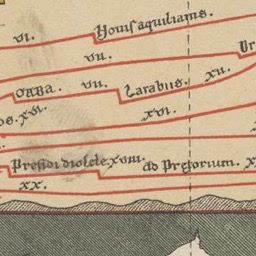 VI. Noviſ aquilianiſ.
VII.
Oaba. VII. Larabuſ. XII.
XVI. XVI.
Preſidi diolele. XVIII. ad Pretorium.
XX.